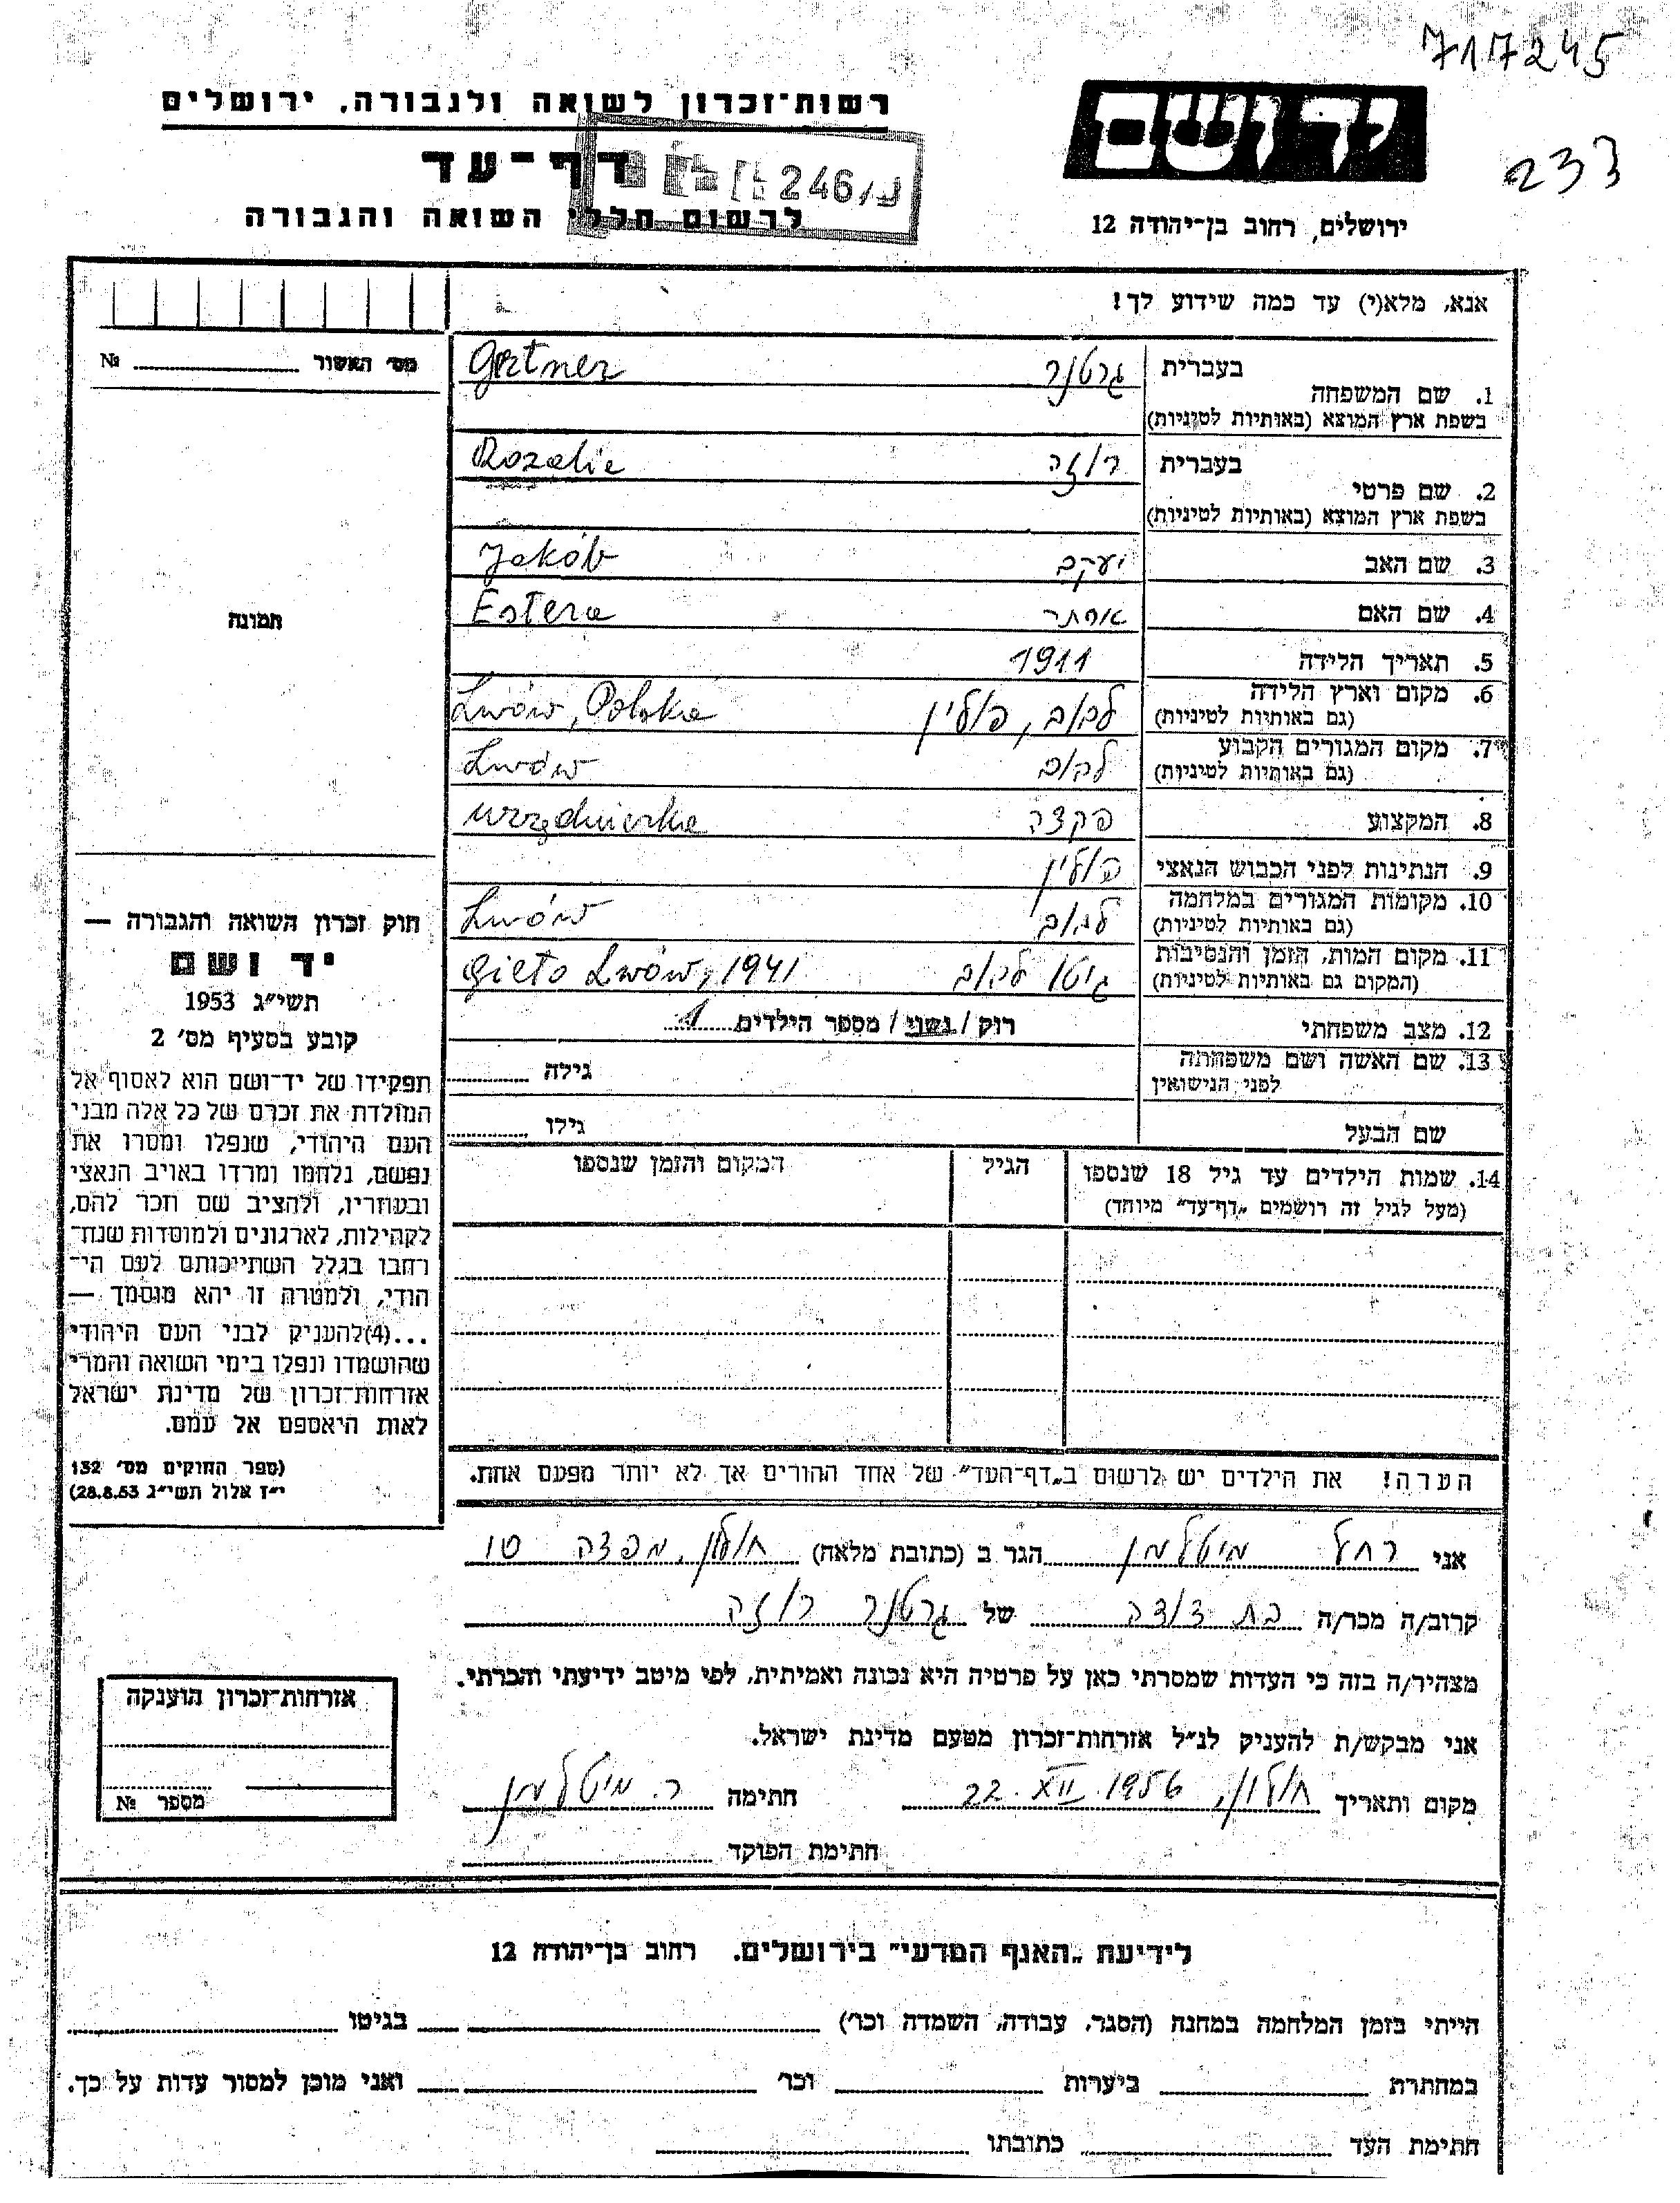 717245
233
יד ושם
ירושלים, רחוב בן־יהודה 12
רשות־זכרון לשואה ולגבורה, ירושלים
דף־עד
246/נ
לרשום חללי השואה והגבורה
אנא, מלא(י) עד כמה שידוע לך!
1. שם המשפחה
בעברית גרטנר Gertner
בשפת ארץ המוצא (באותיות לטיניות)
2. שם פרטי
בעברית רוזה Rozalia
בשפת ארץ המוצא (באותיות לטיניות)
3. שם האב יעקב Jakób
4. שם האם אסתר Estera
5. תאריך הלידה 1911
6. מקום וארץ הלידה לבוב, פולין Lwów, Polska
(גם באותיות לטיניות)
7. מקום המגורים הקבוע לבוב Lwów
(גם באותיות לטיניות)
8. המקצוע פקצה urzędniczka
9. הנתינות לפני הכבוש הנאצי פולין
10. מקומות המגורים במלחמה לבוב Lwów
(גם באותיות לטיניות)
11. מקום המות, הזמן והנסיבות גיטו לבוב Gieto Lwów, 1941
(המקום גם באותיות לטיניות)
12. מצב משפחתי רוק / נשוי / מספר הילדים 1
13. שם האשה ושם משפחתה גילה
לפני הנישואין
שם הבעל גילו
14. שמות הילדים עד גיל 18 שנספו הגיל המקום והזמן שנספו
(מעל לגיל זה רושמים „דף־עד" מיוחד)
הערה! את הילדים יש לרשום ב„דף־העד" של אחד ההורים אך לא יותר מפעם אחת.
מס' האשור №
תמונה
חוק זכרון השואה והגבורה —
יד ושם
תשי"ג 1953
קובע בסעיף מס' 2
תפקידו של יד־ושם הוא לאסוף אל
המולדת את זכרם של כל אלה מבני
העם היהודי, שנפלו ומסרו את
נפשם, נלחמו ומרדו באויב הנאצי
ובעוזריו, ולהציב שם וזכר להם,
לקהילות, לארגונים ולמוסדות שנח־
רבו בגלל השתייכותם לעם הי־
הודי, ולמטרה זו יהא מוסמך —
...(4)להעניק לבני העם היהודי
שהושמדו ונפלו בימי השואה והמרי
אזרחות־זכרון של מדינת ישראל
לאות היאספם אל עמם.
(ספר החוקים מס' 132
י"ז אלול תשי"ג 28.8.53)
אני רחל מיטלמן הגר ב (כתובת מלאה) חולון, מפצה 10
קרוב/ה מכר/ה בת דודה של גרטנר רוזה
מצהיר/ה בזה כי העדות שמסרתי כאן על פרטיה היא נכונה ואמיתית, לפי מיטב ידיעתי והכרתי.
אני מבקש/ת להעניק לנ"ל אזרחות־זכרון מטעם מדינת ישראל.
מקום ותאריך חולון, 22.XII.1956 חתימה ר. מיטלמן
חתימת הפוקד
אזרחות־זכרון הוענקה
מספר №
לידיעת „האגף המדעי" בירושלים. רחוב בן־יהודה 12
הייתי בזמן המלחמה במחנה (הסגר, עבודה, השמדה וכר') בגיטו
במחתרת ביערות וכר' ואני מוכן למסור עדות על כך.
חתימת העד כתובתו